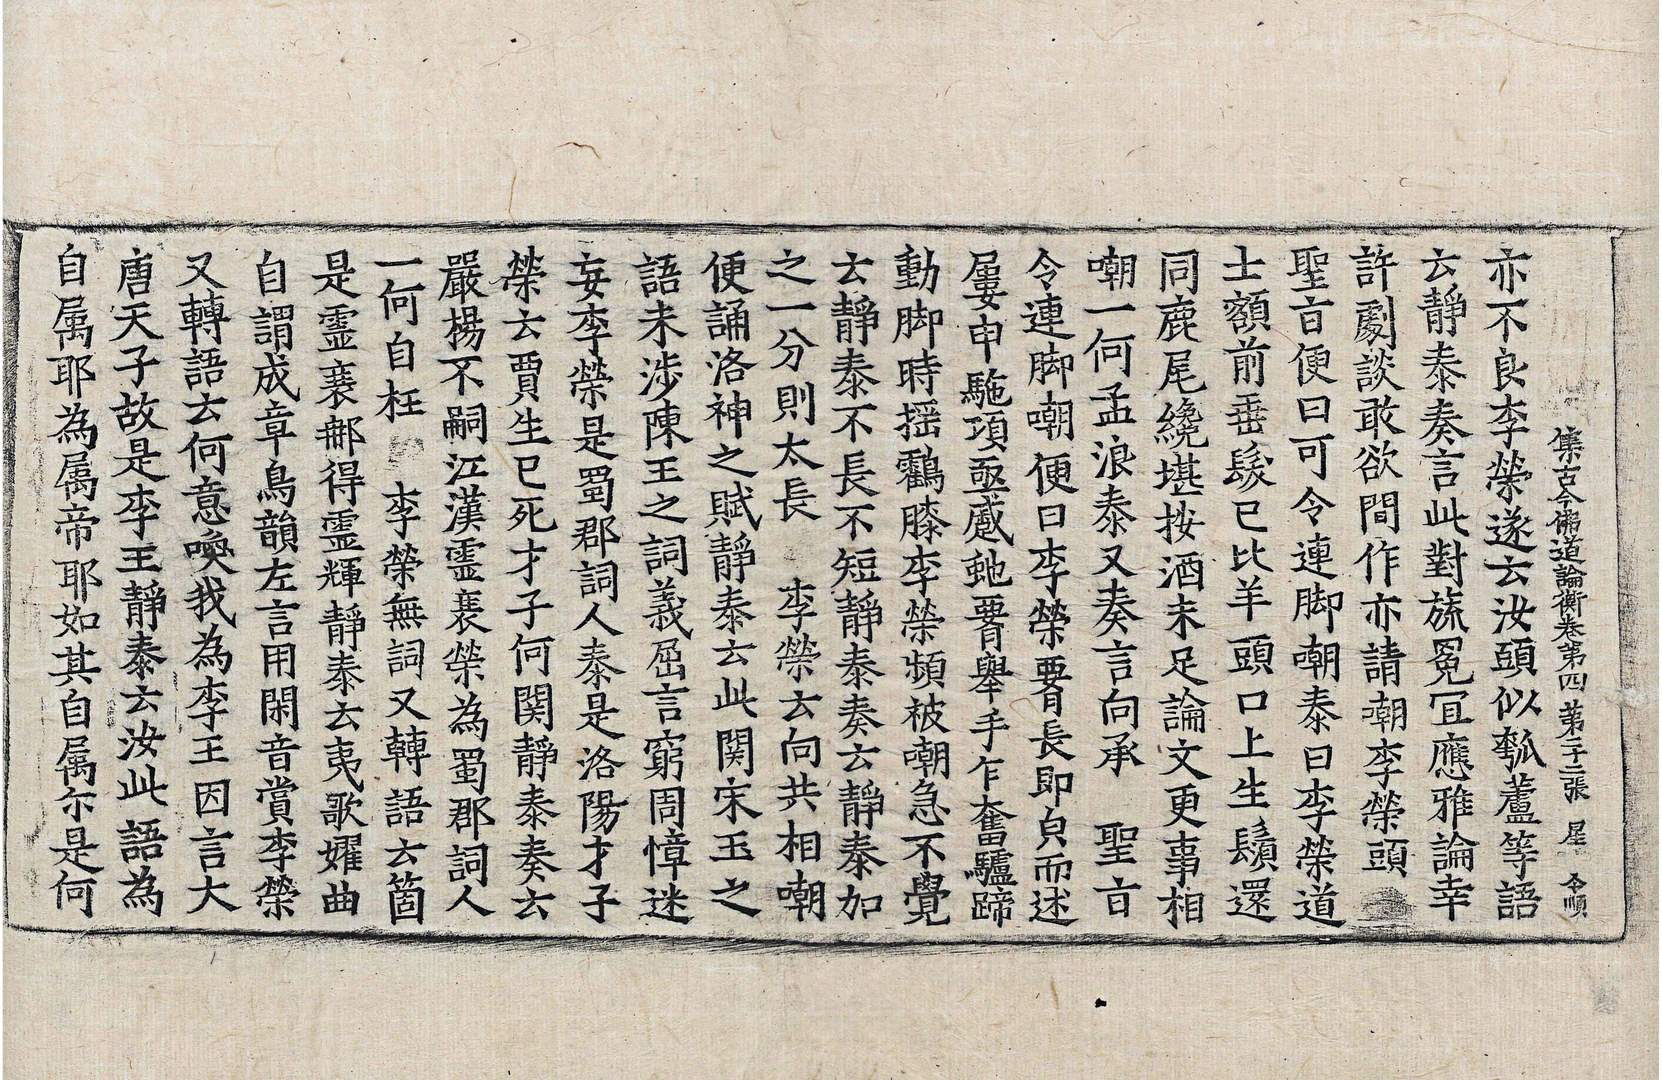 集古今佛道論衡卷第四 第三十二張 星 令順
亦不良李榮遂云汝頭似瓠蘆等語
云靜泰奏言此對旒冕宜應雅論幸
許劇談敢欲間作亦請嘲李榮頭
聖旨便曰可令連脚嘲泰曰李榮道
士額前垂髮已比羊頭口上生鬚還
同鹿尾纔堪按酒未足論文更事相
嘲一何孟浪泰又奏言向承 聖旨
令連脚嘲便曰李榮腰長即貞而述
屢申駞項亟蹙虵腰舉手乍奮驢蹄
動脚時搖鸛膝李榮頻被嘲急不覺
云靜泰不長不短靜泰奏云靜泰如
之一分則太長 李榮云向共相嘲
便誦洛神之賦靜泰云此関宋玉之
語未涉陳王之詞義屈言窮周慞迷
妄李榮是蜀郡詞人泰是洛陽才子
榮云賈生已死才子何関靜泰奏云
嚴楊不嗣江漢靈衰榮為蜀郡詞人
一何自枉 李榮無詞又轉語云箇
是靈衰郍得靈輝靜泰云夷歌嬥曲
自謂成章鳥韻左言用閑音賞李榮
又轉語云何意喚我為李王因言大
唐天子故是李王靜泰云汝此語為
自属耶為属帝耶如其自属尓是何